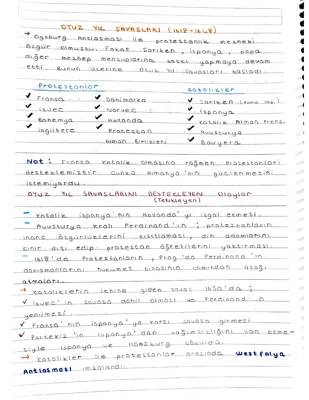 OTUZ YIL SAVAŞLARI (1618-1648)
→ Ogsburg Antlaşması ile protestanlık mezhebi
özgür olmuştu. Fakat Şarlken, İspanya, papa
diğer mezhep mensuplarına baskı yapmaya devam
etti. Bunun üzerine Otuz Yıl savaşları başladı.
Protestanlar Katolikler
✓ Fransa ✓ Danimarka ✓ Şarlken
✓ İsveç ✓ Norveç ✓ İspanya
✓ Bohemya ✓ Hollanda ✓ Katolik Alman Prens.
✓ İngiltere ✓ Protestan ✓ Avusturya
Alman Birlikleri ✓ Bavyera
Not: Fransa katolik olmasına rağmen Protestanları
desteklemiştir. Çünkü Almanya'nın güçlenmesini
istemiyordu.
OTUZ YIL SAVAŞLARINI DESTEKLEYEN Olaylar
(Tetikleyen)
- Katolik İspanya'nın Hollanda'yı işgal etmesi.
- Avusturya kralı Ferdinand'ın; protestanların
inanç özgürlüklerini kısıtlaması, din adamlarını
sınır dışı edip protestan öğretilerini yaktırması.
- 1618'de Protestanların, Prag'da Ferdinand'ın
danışmanlarını hükümet binasının camından aşağı
atmaları.
→ Katoliklerin lehine giden savaş 1630'da;
✓ İsveç'in savaşa dahil olması ve Ferdinand'ın
yenilmesi
✓ Fransa'nın İspanya'ya karşı savaşa girmesi
✓ Portekiz'in İspanya'dan bağımsızlığını ilan etme-
siyle İspanya ve Habsburg çözüldü.
→ Katolikler ile protestanlar arasında Westfalya
Antlaşması imzalandı.